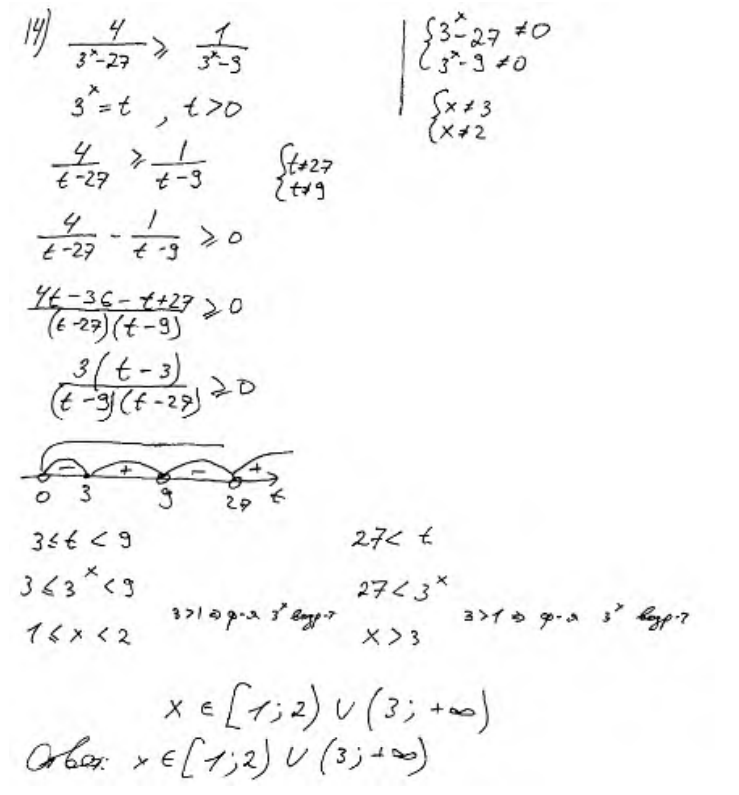 14) 4/(3^x-27) ≥ 1/(3^x-9)
{3^x-27 ≠0
{3^x-9 ≠0
{x≠3
{x≠2
3^x=t, t>0
4/(t-27) ≥ 1/(t-9)
{t≠27
{t≠9
4/(t-27) - 1/(t-9) ≥ 0
(4t-36-t+27)/((t-27)(t-9)) ≥ 0
3(t-3)/((t-9)(t-27)) ≥ 0
- + - +
0 3 9 27 t
3≤t<9
3≤3^x<9
1≤x<2
3>1 ⇒ ф-я 3^x возр-т
27<t
27<3^x
x>3
3>1 ⇒ ф-я 3^x возр-т
x ∈ [1;2) ∪ (3; +∞)
Ответ: x ∈ [1;2) ∪ (3; +∞)